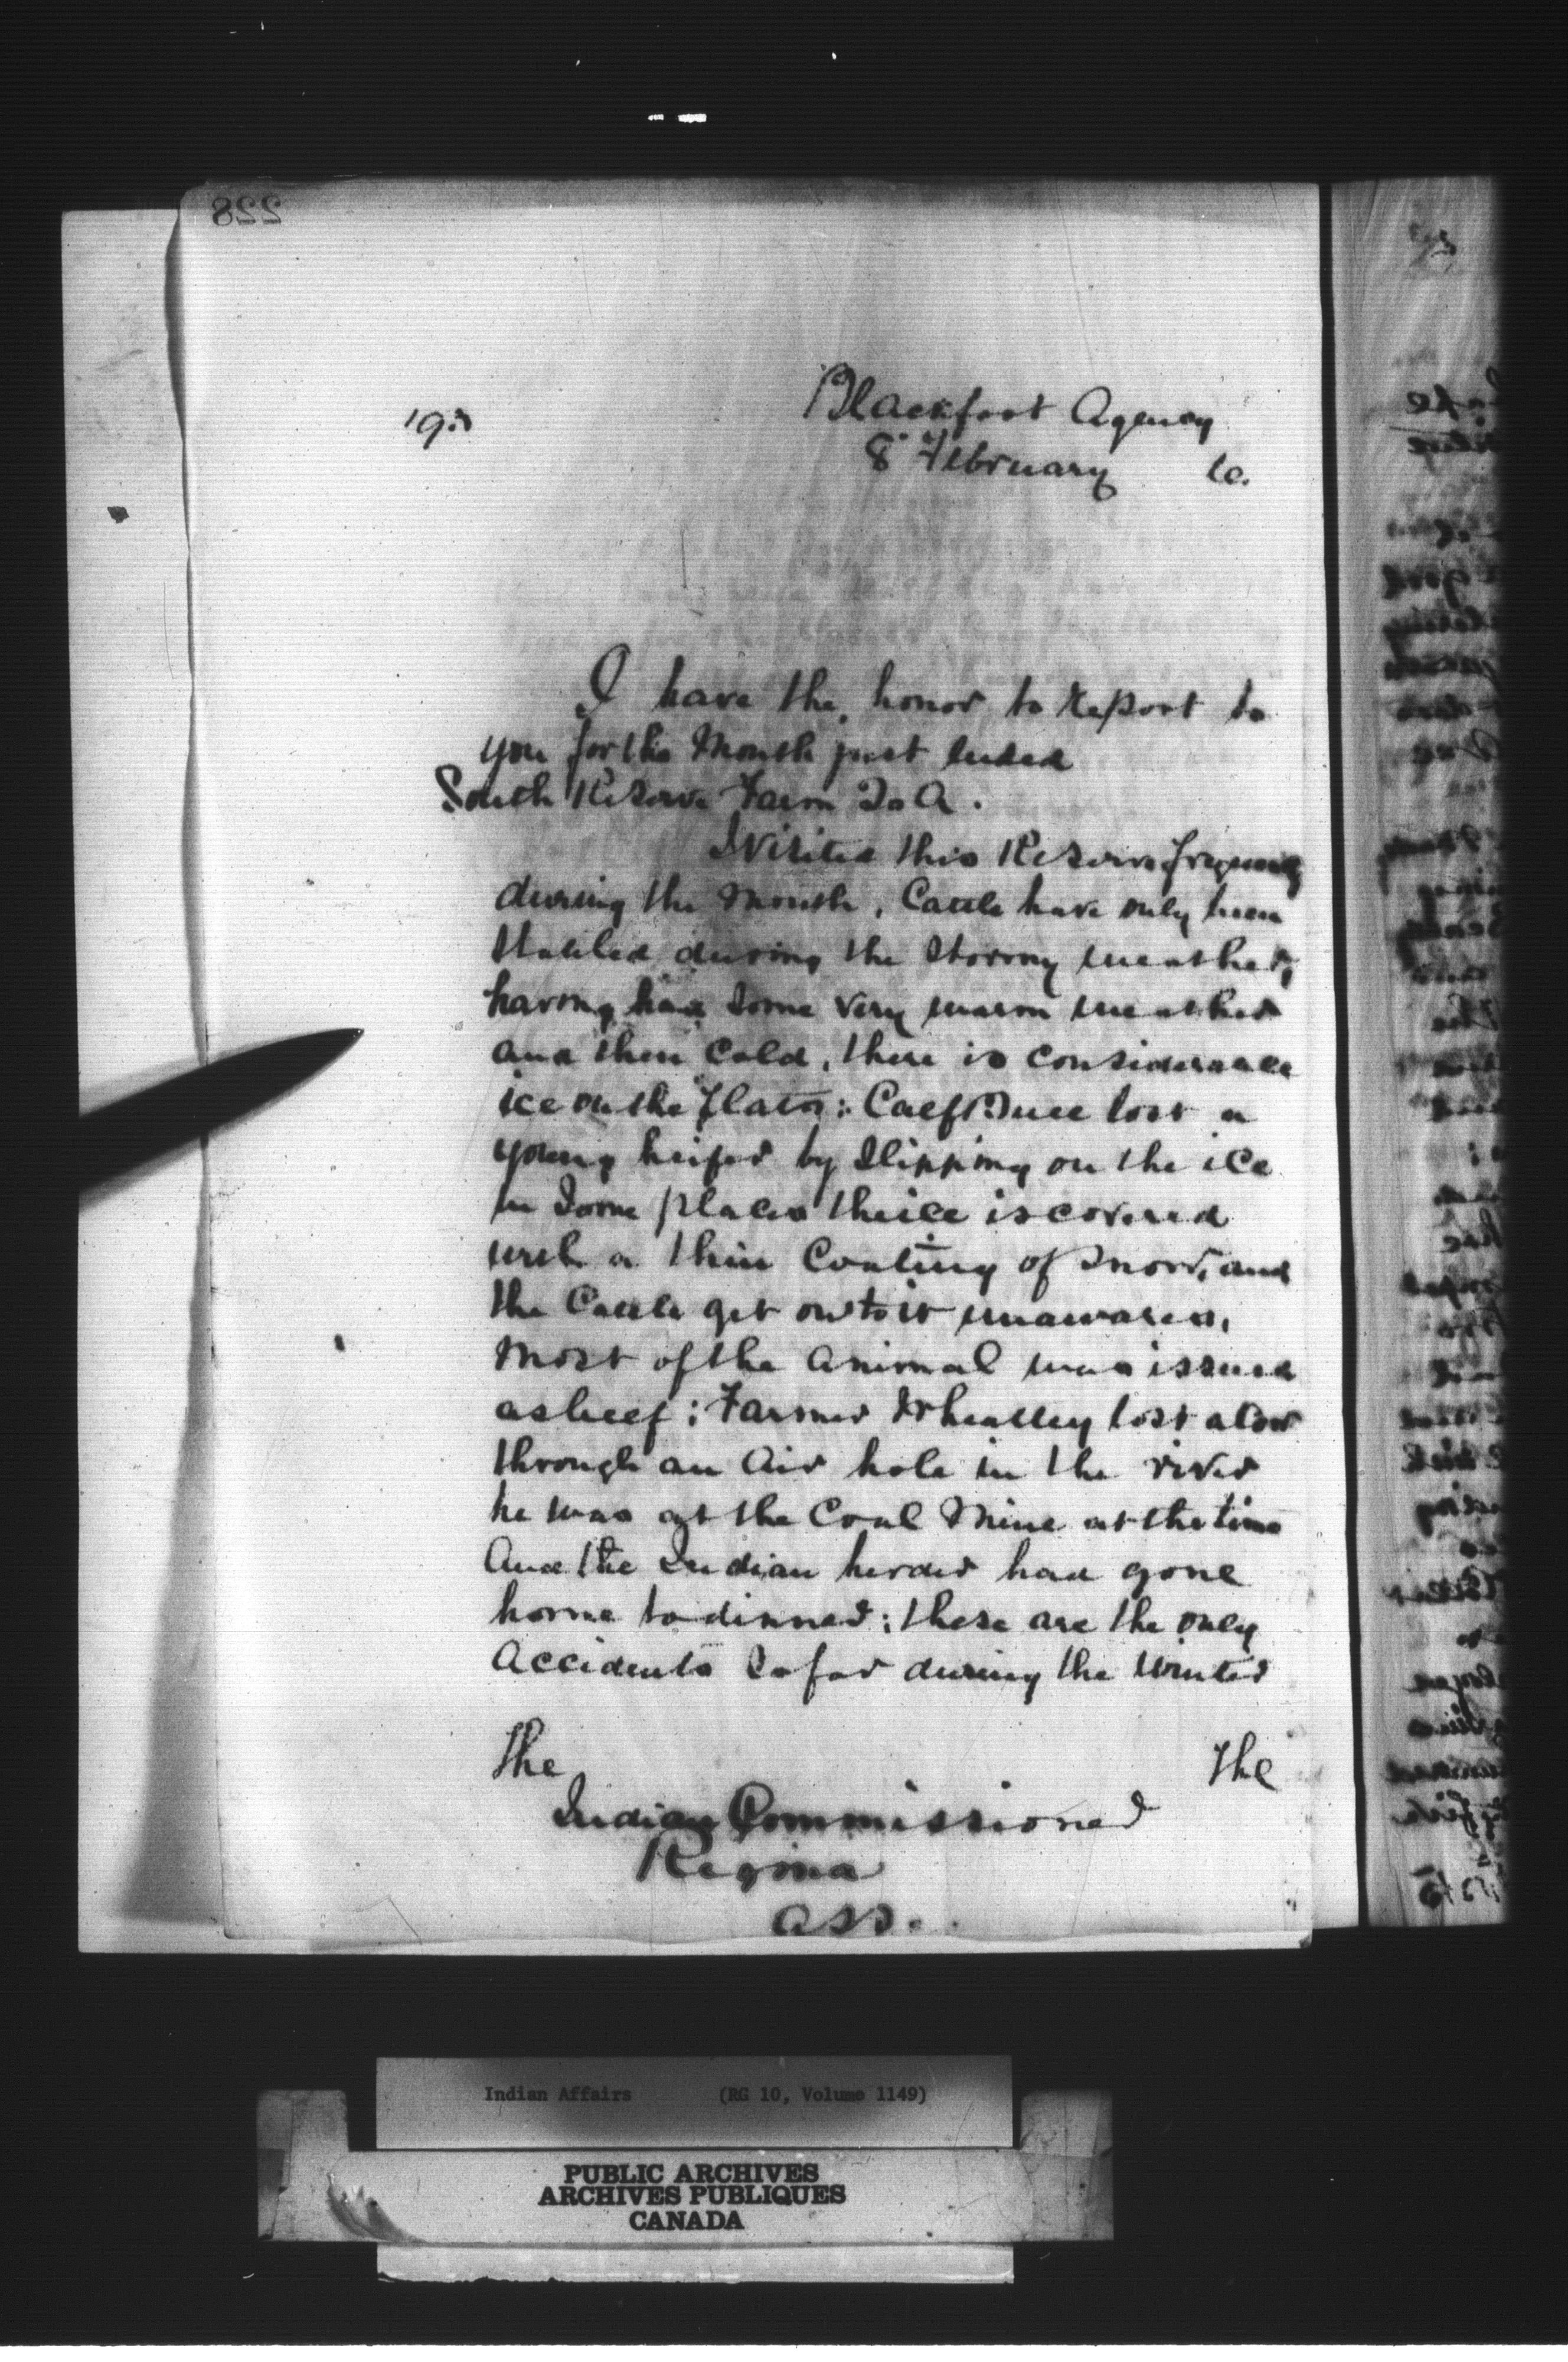 228
Blackfoot Agency
8 February
I have the honor to Report to
you for the Month past ended
South Reserve Farm
I visited this Reserve frequently
during the Month, Cattle have only been
Stabled during the Stormy weather,
having had Some Very warm weather
and then Cold, there is considerable
ice on the flats: Calf Bull lost a
young heifer by Slipping on the ice
in Some places the ice is covered
with a thin Coating of Snow, and
the Cattle get on to it unawares,
Most of the Animal was issued
as beef: Farmer Wheatley lost a
through an Air hole in the river
he was at the Coal Mine at the time
And the Indian herder had gone
home to dinner: these are the only
Accidents So far during the Winter
The
the
Indian Commissioner
Regina
Ass.
Indian Affairs (RG 10, Volume 1149)
PUBLIC ARCHIVES
ARCHIVES PUBLIQUES
CANADA